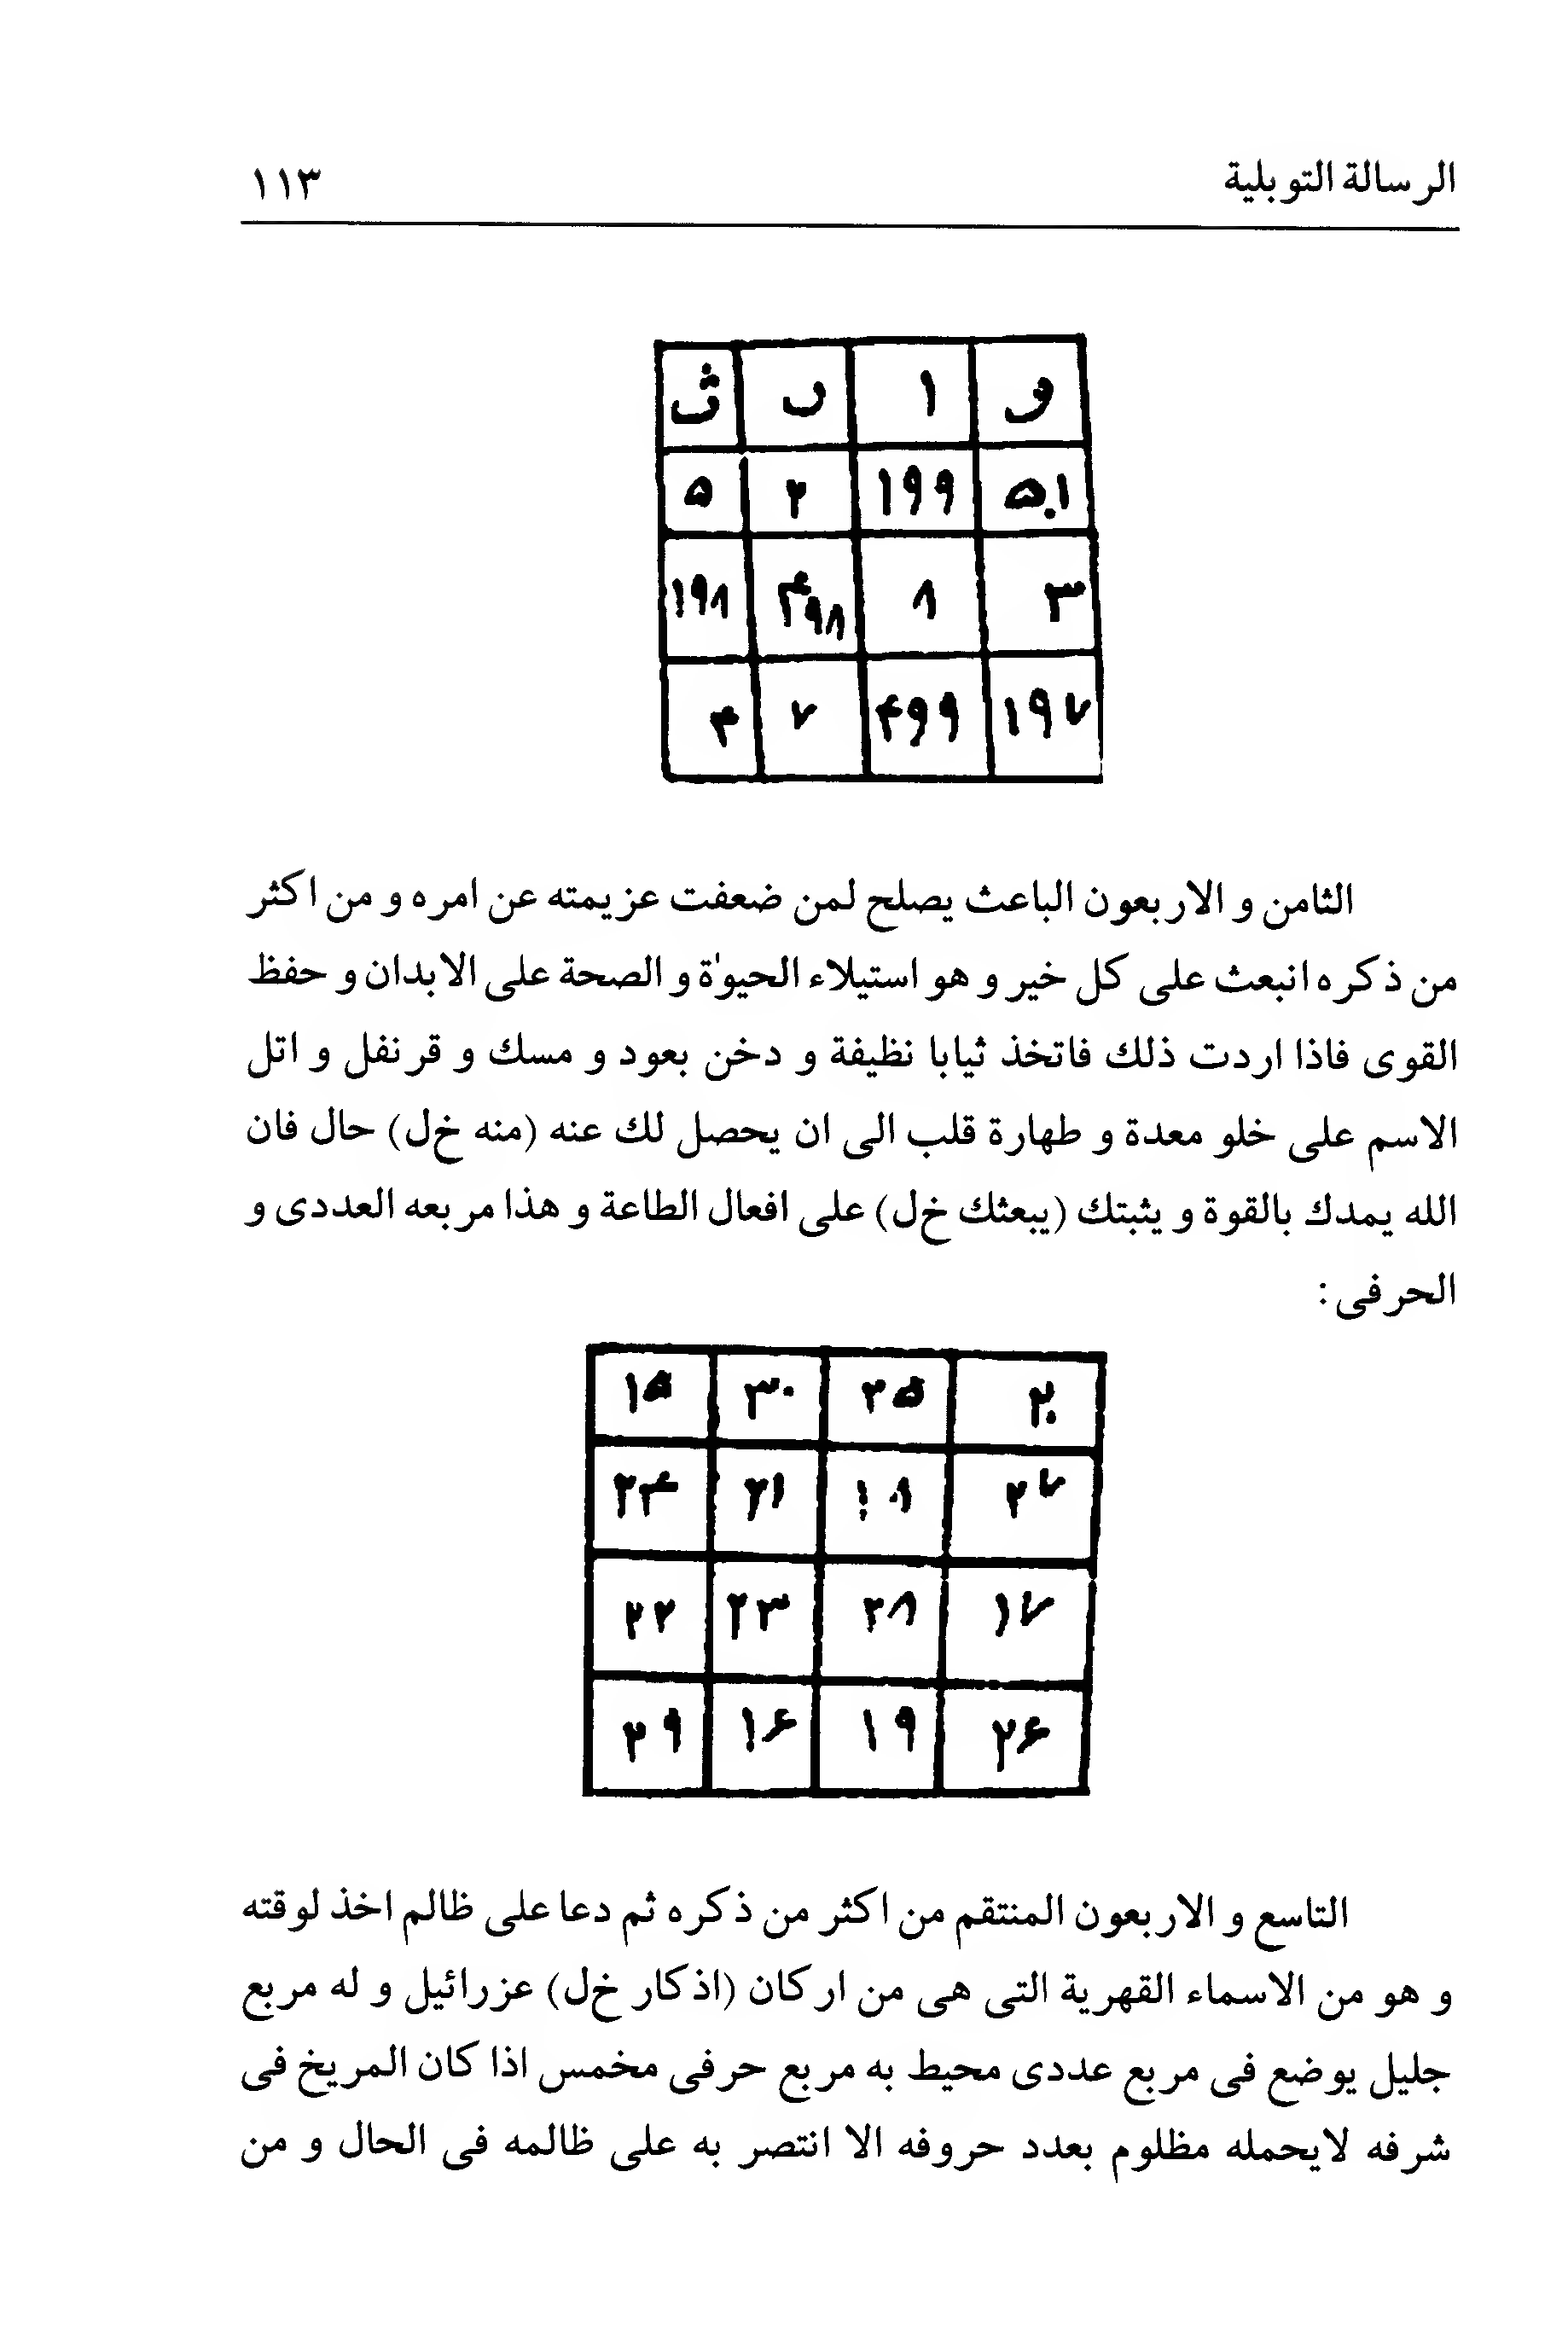 الرسالة التوبلية ١١٣
و ا ٮ ث
۵۰۱ ۱۹۹ ۲ ۵
۳ ۸ ۴۹۸ ۱۹۸
۱۹۷ ۴۹۹ ۷ ۴
الثامن و الاربعون الباعث يصلح لمن ضعفت عزيمته عن امره و من اكثر
من ذكره انبعث على كل خير و هو استيلاء الحيوٰة و الصحة على الابدان و حفظ
القوى فاذا اردت ذلك فاتخذ ثيابا نظيفة و دخن بعود و مسك و قرنفل و اتل
الاسم على خلو معدة و طهارة قلب الى ان يحصل لك عنه (منه خ‌ل) حال فان
الله يمدك بالقوة و يثبتك (يبعثك خ‌ل) على افعال الطاعة و هذا مربعه العددى و
الحرفى :
۲۰ ۲۵ ۳۰ ۱۵
۲۷ ۱۸ ۲۱ ۲۴
۱۷ ۲۸ ۲۳ ۲۲
۲۶ ۱۹ ۱۶ ۲۹
التاسع و الاربعون المنتقم من اكثر من ذكره ثم دعا على ظالم اخذ لوقته
و هو من الاسماء القهرية التى هى من اركان (اذكار خ‌ل) عزرائيل و له مربع
جليل يوضع فى مربع عددى محيط به مربع حرفى مخمس اذا كان المريخ فى
شرفه لايحمله مظلوم بعدد حروفه الا انتصر به على ظالمه فى الحال و من